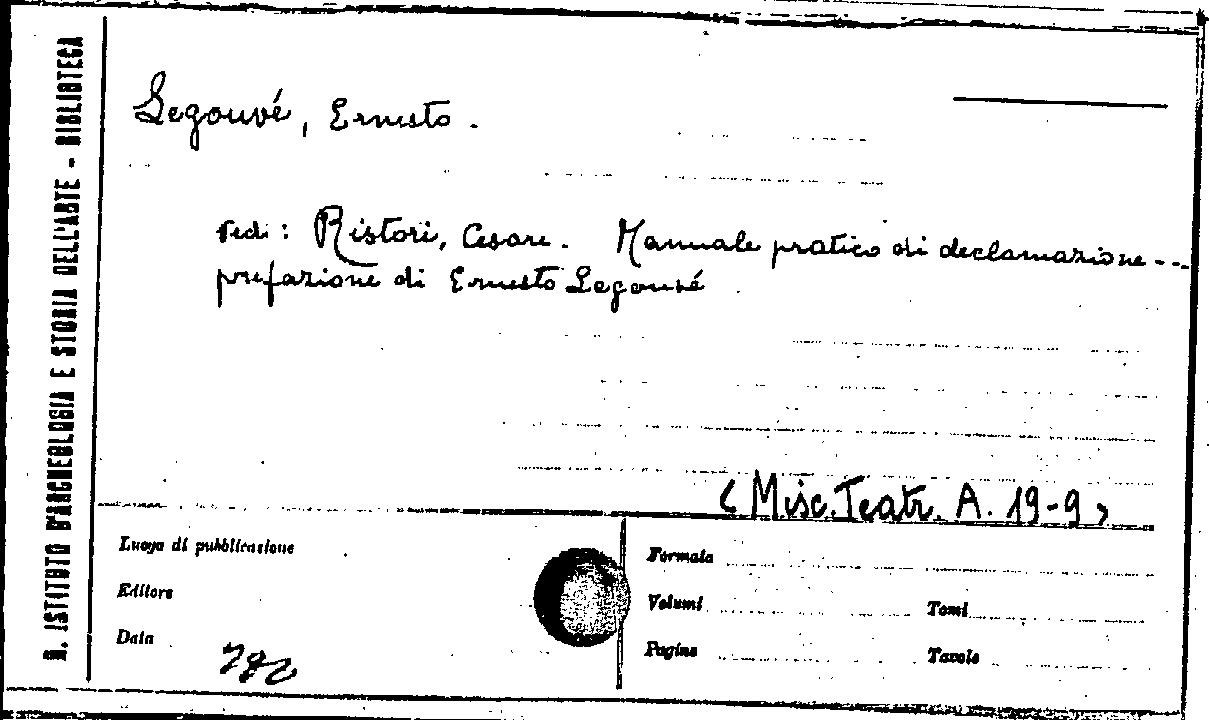 R. ISTITUTO D'ARCHEOLOGIA E STORIA DELL'ARTE - BIBLIOTECA
Legouvé, Ernesto.
vedi: Ristori, Cesare. Manuale pratico di declamazione ---
prefazione di Ernesto Legouvé
(Misc. Teatr. A. 19-9)
Luogo di pubblicazione
Editore
Data
Formato
Volumi
Tomi
Pagine
Tavole